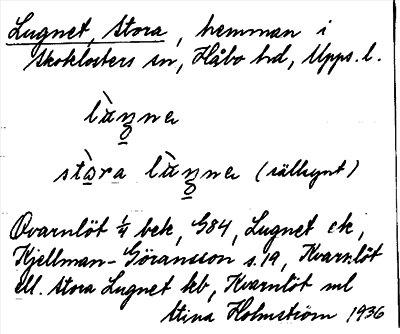 Lugnet, Stora, hemman i
Skoklosters sn, Håbo hd, Upps. l.
lùŋna
stòra lùŋna (sällsynt)
Qvarnlöt 1/4 bek, G84, Lugnet ek,
Kjellman-Göransson s. 19, Kvarnlöt
ell. Stora Lugnet kb, Kvarnlöt ml
Stina Holmström 1936